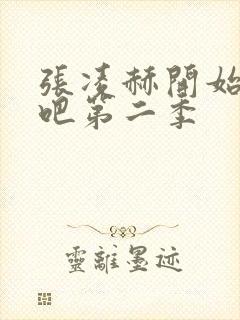 張凌赫開始
吧第二季
靈離墨迹